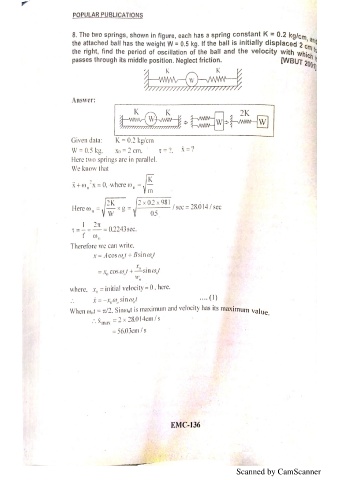 POPULAR PUBLICATIONS
8. The two springs, shown in figure, each has a spring constant K = 0.2 kg/cm, and
the attached ball has the weight W = 0.5 kg. If the ball is initially displaced 2 cm to
the right, find the period of oscillation of the ball and the velocity with which it
passes through its middle position. Neglect friction. [WBUT
K K
W
Answer:
K K 2K
W ⇒ W ⇒ W
Given data: K = 0.2 kg/cm
W = 0.5 kg, x₀ = 2 cm, τ = ?, ẋ = ?
Here two springs are in parallel.
We know that
ẍ + ωₙ²x = 0, where ωₙ = √(K/m)
Here ωₙ = √(2K/W × g) = √(2 × 0.2 × 981/0.5) / sec = 28.014 / sec
τ = 1/f = 2π/ωₙ = 0.2243 sec.
Therefore we can write,
x = A cos ωₙt + B sin ωₙt
= x₀ cos ωₙt + ẋ₀/ωₙ sin ωₙt
where, ẋ₀ = initial velocity = 0, here.
∴ ẋ = −x₀ωₙ sin ωₙt .... (1)
When ωₙt = π/2, Sinωₙt is maximum and velocity has its maximum value.
∴ ẋmax = 2 × 28.014cm / s
= 56.03cm / s
EMC-136
Scanned by CamScanner